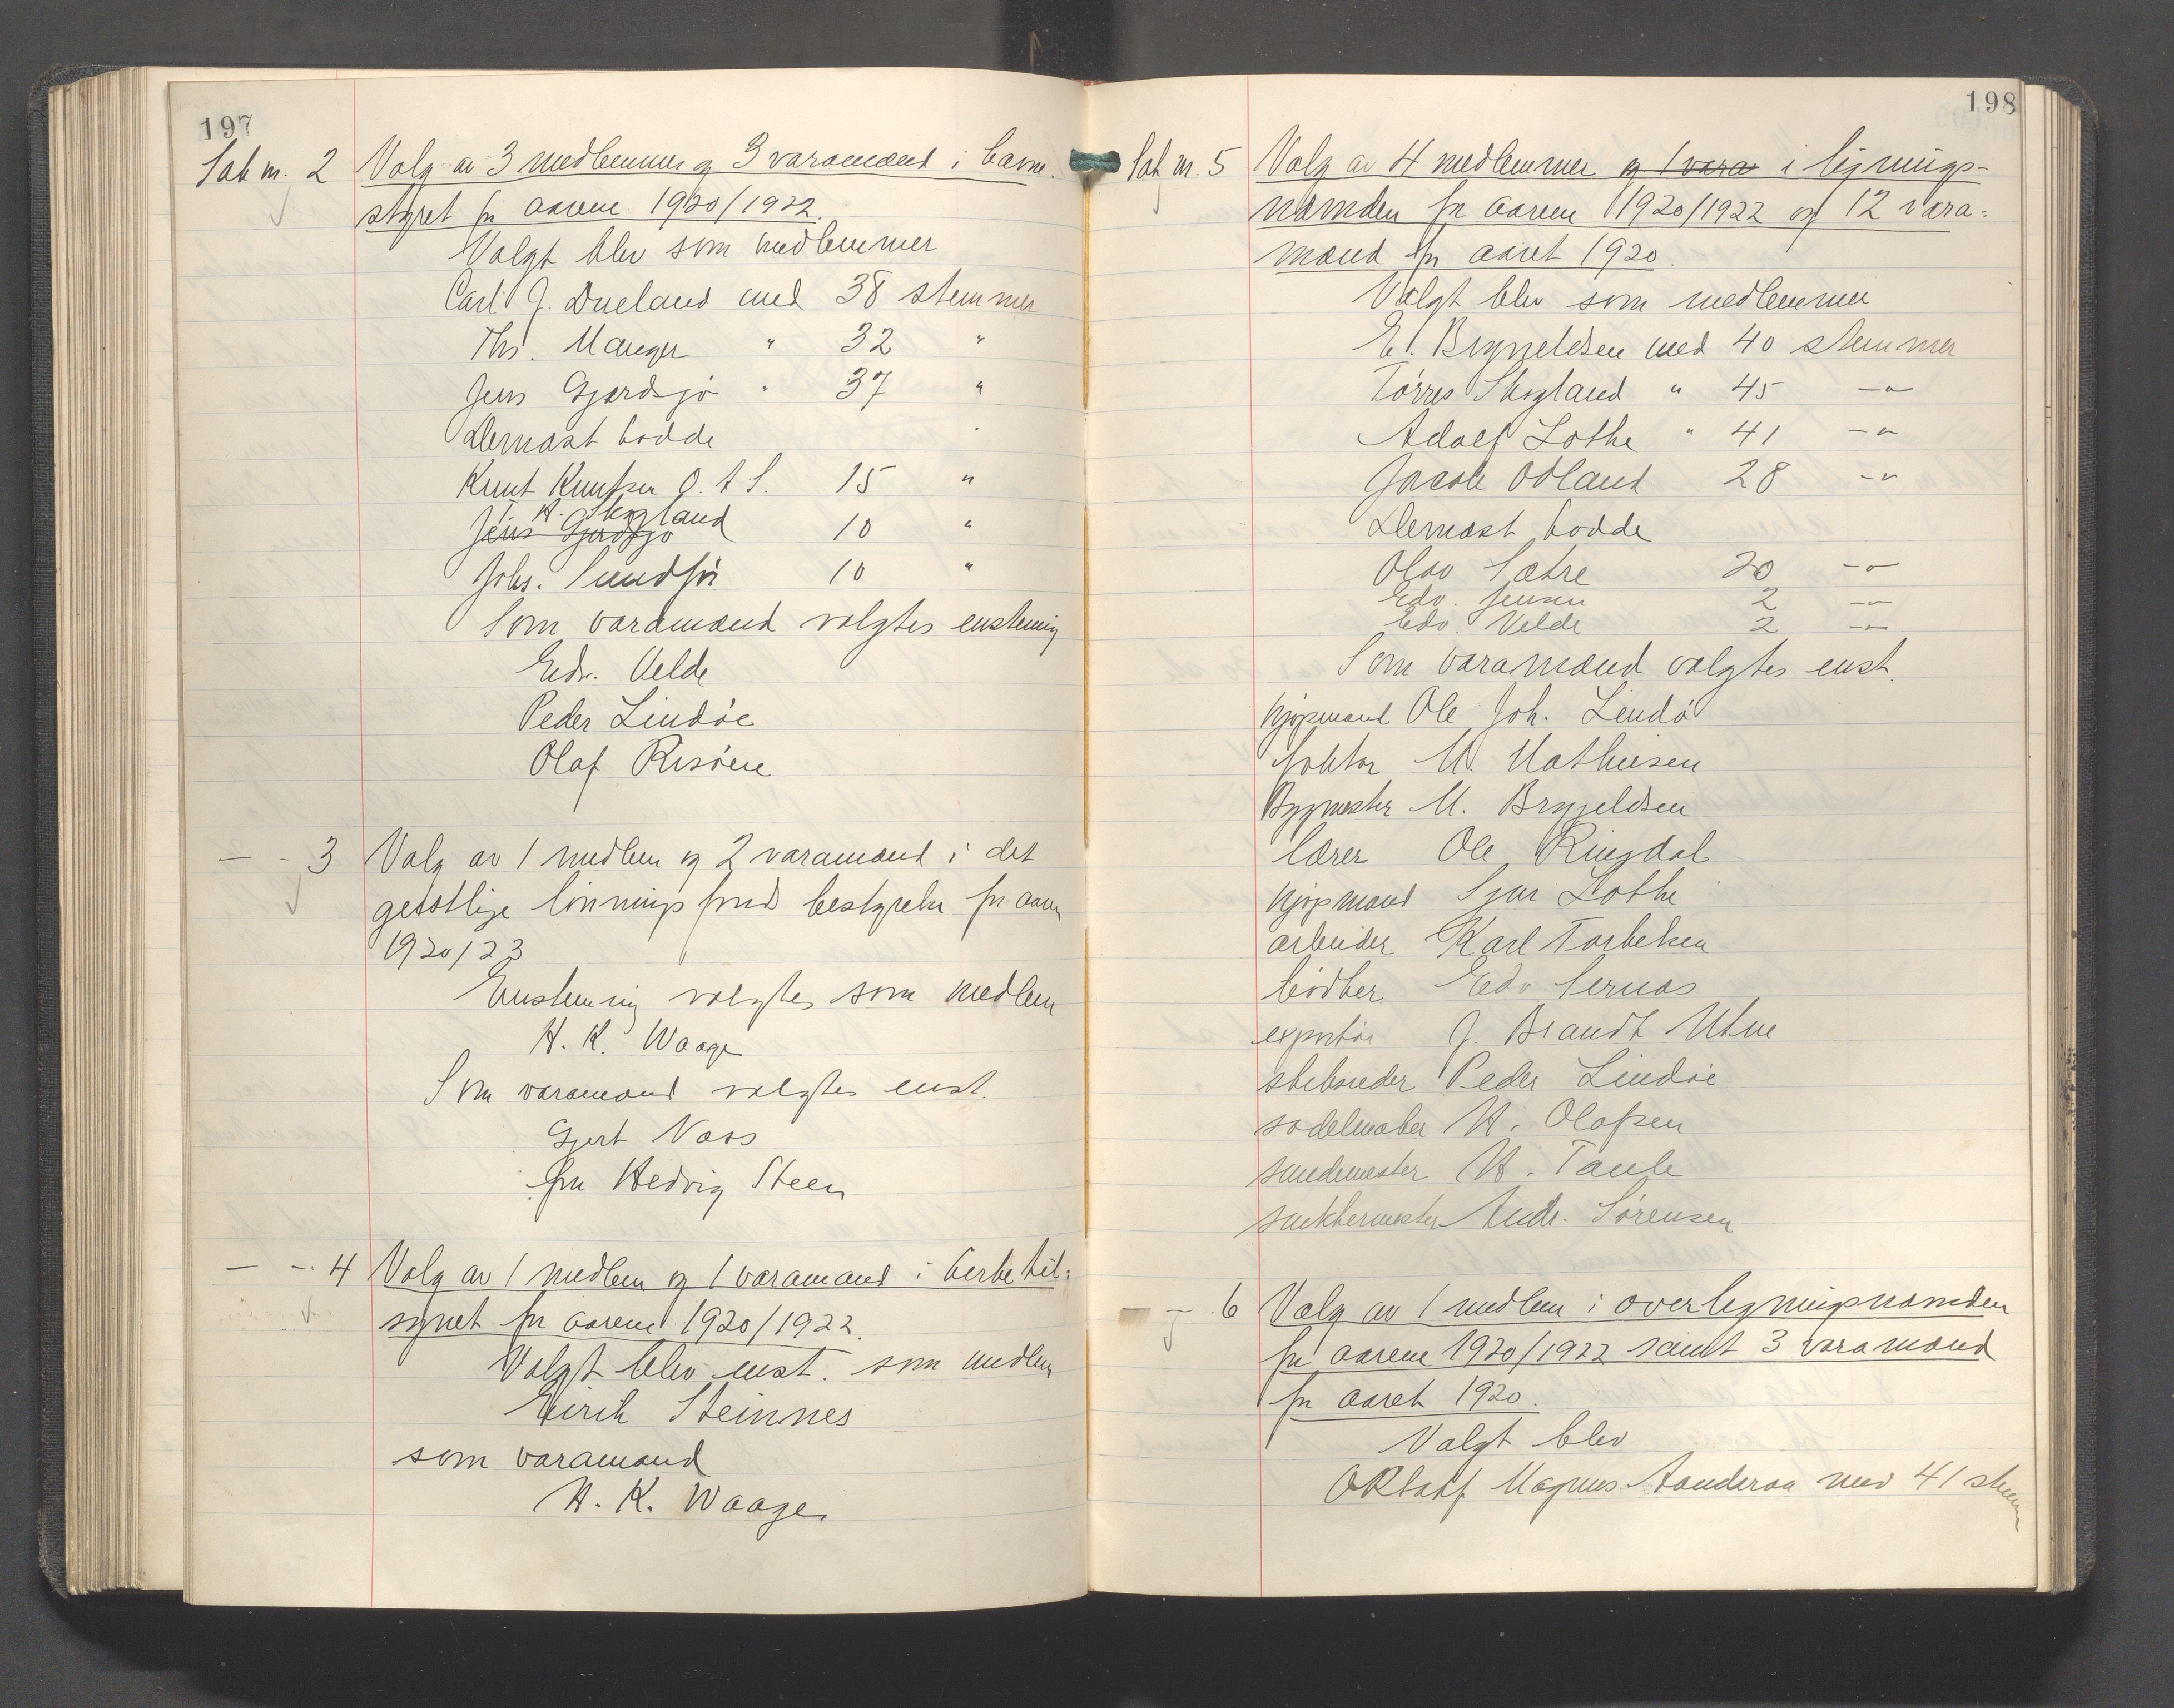 197
Sak nr. 2 Valg av 3 medlemmer og 3 varamænd i havne-
styret for aarene 1920/1922.
Valgt blev som medlemmer
Carl J. Dueland med 38 stemmer
Ths. Manger " 32 "
Jens Gjerdsjø " 37 "
Dernæst hadde
Knut Knutsen O. A. S. 15 "
T. H. Skogland
Jens Gjerdsjø 10 "
Johs. Sundfør 10 "
Som varamænd valgtes enstemmig
Edv. Velde
Peder Lindøe
Olaf Risøen
— - 3 Valg av 1 medlem og 2 varamænd i det
geistlige lønningsfonds bestyrelse for aarene
1920/23
Enstemmig valgtes som medlem
H. K. Waage
Som varamænd valgtes enst.
Gjert Naas
fru Hedvig Steen
— - 4 Valg av 1 medlem og 1 varamand i kirketil-
synet for aarene 1920/1922.
Valgt blev enst. som medlem
Eirik Steinnes
som varamand
H. K. Waage
198
Sak nr. 5 Valg av 4 medlemmer og 1 vara i lignings-
nemnden for aarene 1920/1922 og 12 vara-
mænd for aaret 1920.
Valgt blev som medlemmer
E. Brynjeldsen med 40 stemmer
Tørres Skogland " 45 —"—
Adolf Lothe " 41 —"—
Jacob Odland 28 —"—
Dernæst hadde
Olav Sætre 20 —"—
Edv. Jensen 2 —"—
Edv. Velde 2 —"—
Som varamænd valgtes enst.
kjøpmand Ole Joh. Lindø
doktor M. Mathiesen
Bygmester M. Brynjeldsen
lærer Ole Ringdal
kjøpmand Sjur Lothe
arbeider Karl Torbeksen
bødker Edv.
exportør J. Brandt Utne
skibsreder Peder Lindøe
sadelmaker H. Olafsen
smedemester H. Taule
snekkermester Andr. Sørensen
— 6 Valg av 1 medlem i overligningsnemnden
for aarene 1920/1922 samt 3 varamænd
for aaret 1920.
Valgt blev
O.R.sakf. Magnus Aanderaa med 41 stemmer